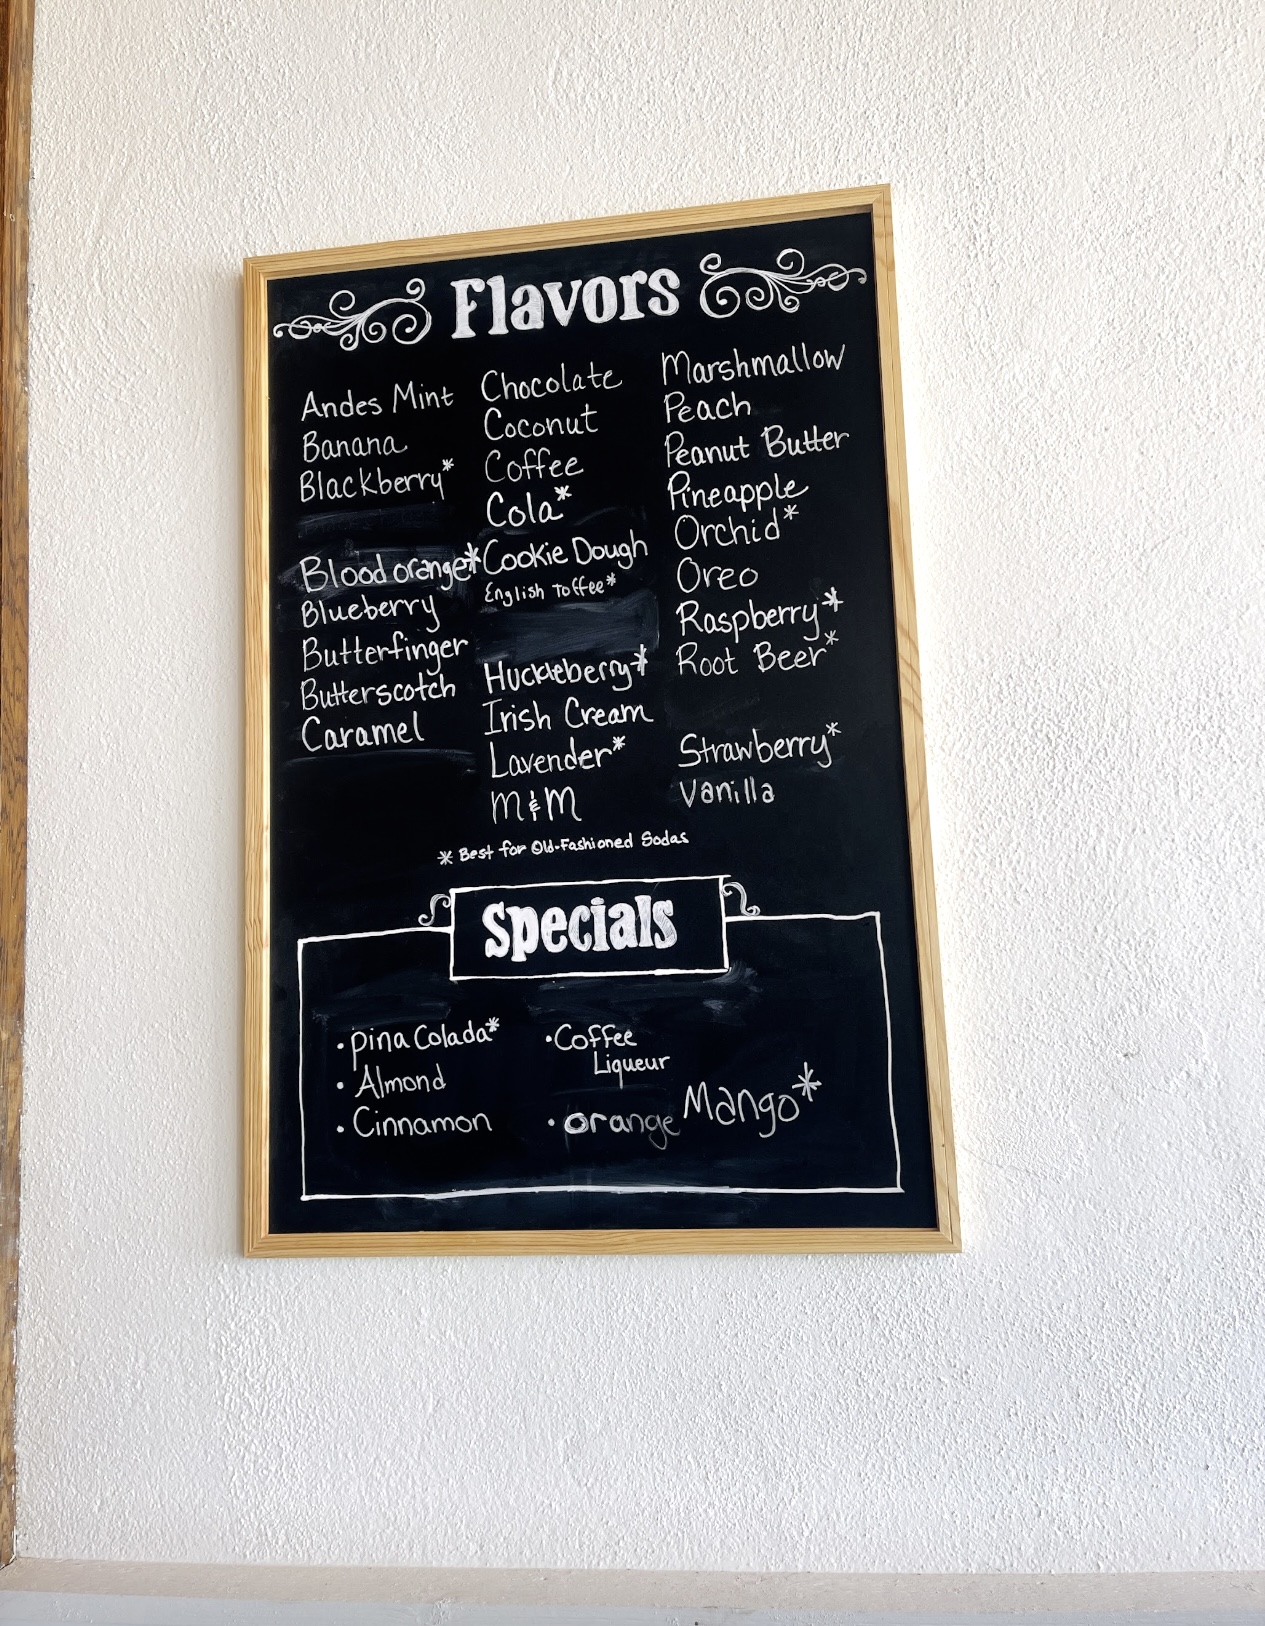 Flavors
Andes Mint
Banana
Blackberry*
Blood orange*
Blueberry
Butterfinger
Butterscotch
Caramel
Chocolate
Coconut
Coffee
Cola*
Cookie Dough
English Toffee*
Huckleberry*
Irish Cream
Lavender*
M&M
Marshmallow
Peach
Peanut Butter
Pineapple
Orchid*
Oreo
Raspberry*
Root Beer*
Strawberry*
Vanilla
* Best for Old-Fashioned Sodas
Specials
• pina Colada*
• Almond
• Cinnamon
• Coffee
Liqueur
• orange Mango*